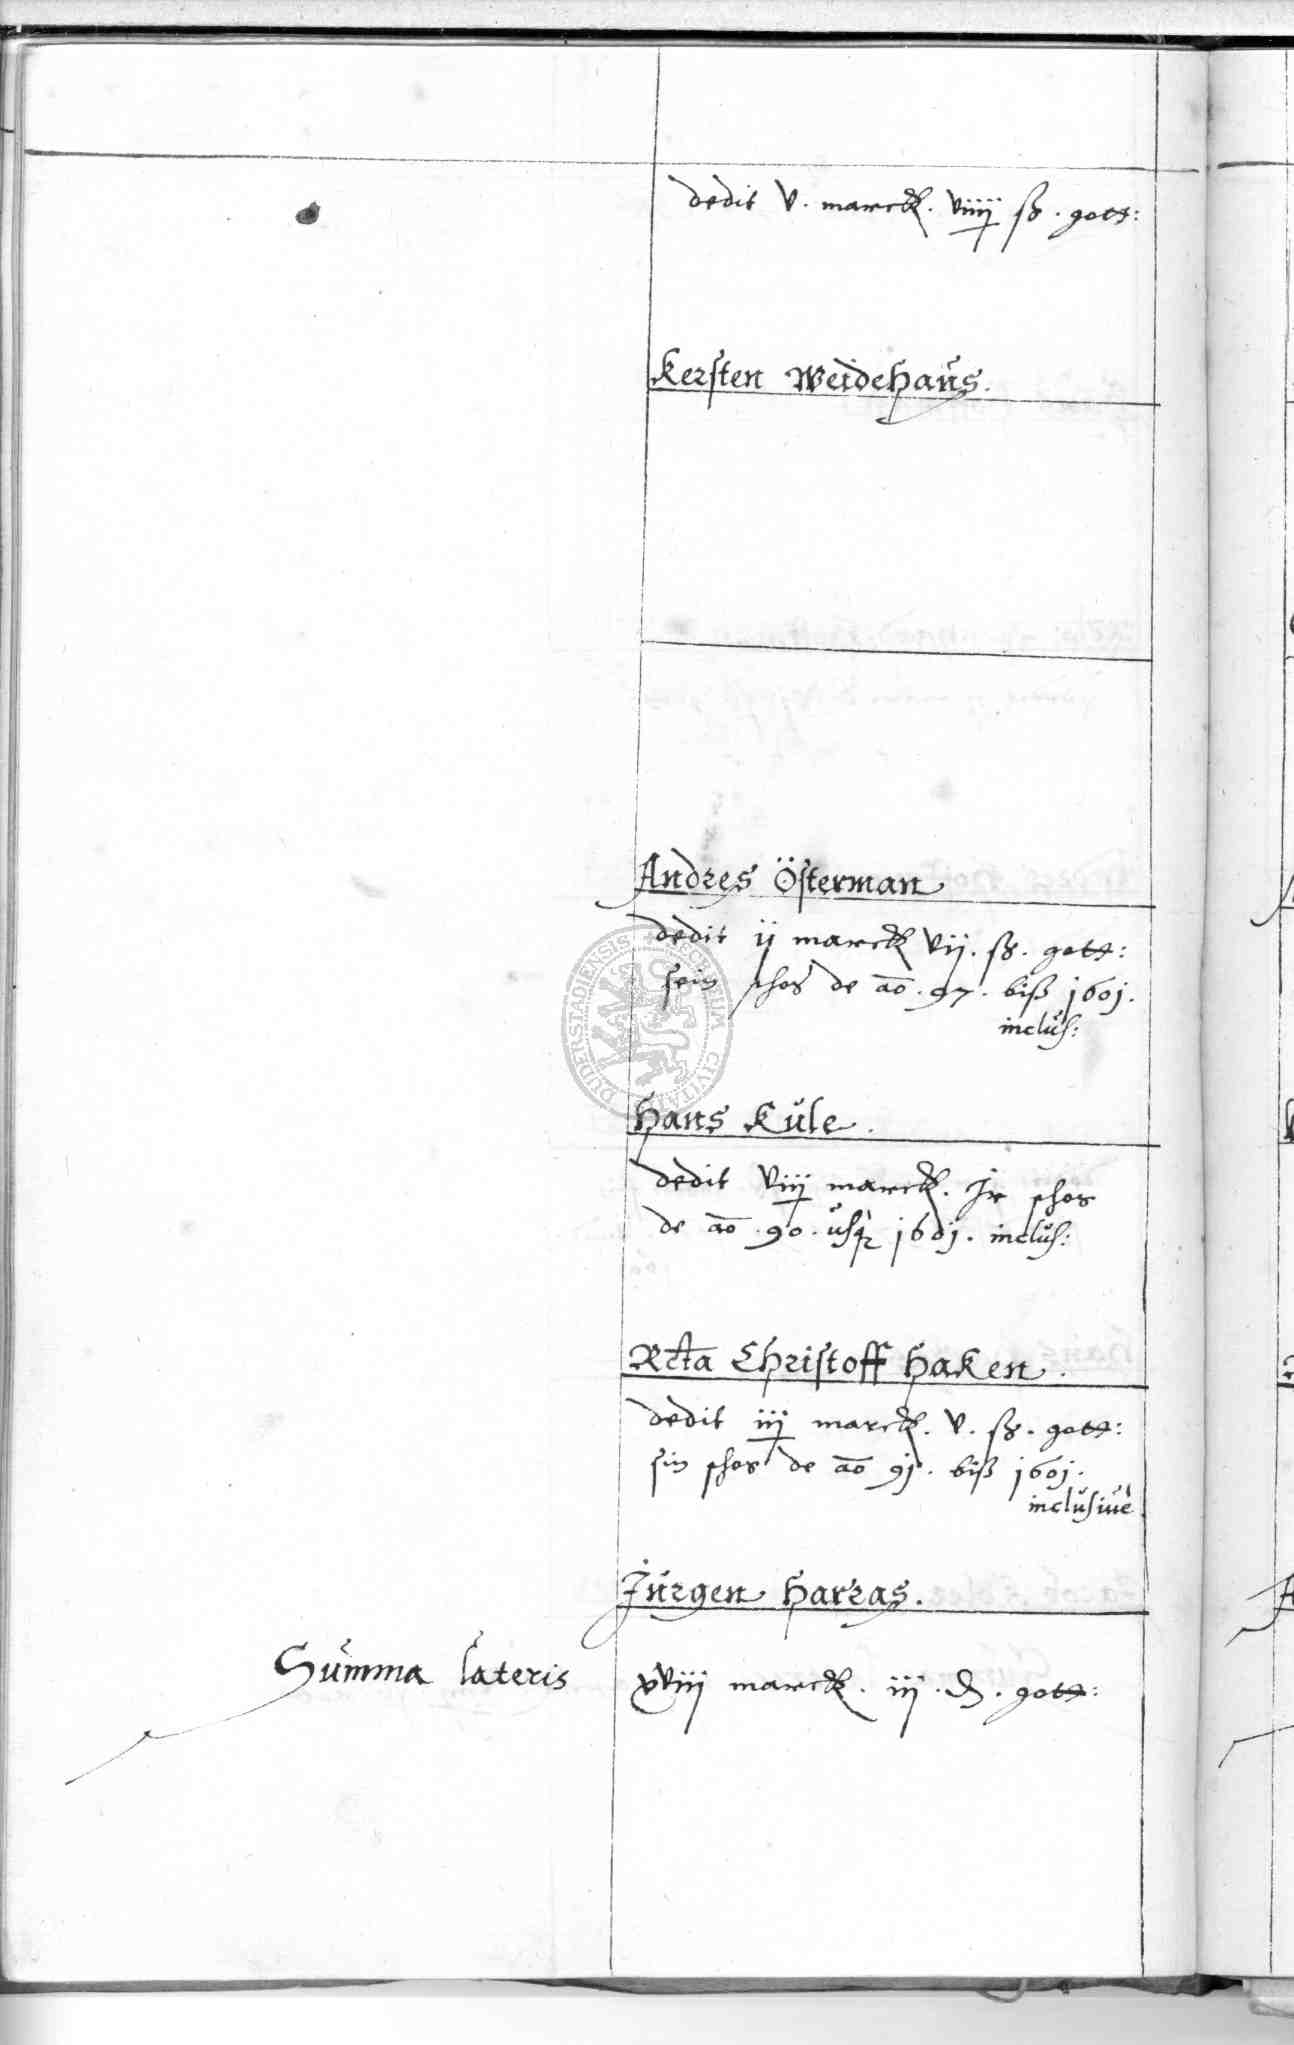 dedit v. marck. viiij ß. gott:
Kersten Weidehaus.
Andres Österman
dedit ij marck vij. ß. gott:
sein schos de ao. 97. biß 1601.
inclus:
Hans Kule.
dedit viij marck. Ir schos
de ao. 90. usq 1601. inclus:
Rcta Christoff Haken.
dedit iij marck. v. ß. gott:
sin schos de ao 91. biß 1601.
inclusiuè
Jurgen Harras.
Summa lateris xviij marck. iij. d. gott:
DUDERSTADIENSIS CIVITATIS